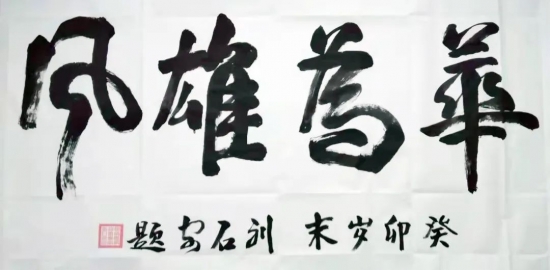 華為雄风
癸卯岁末 刘石安题